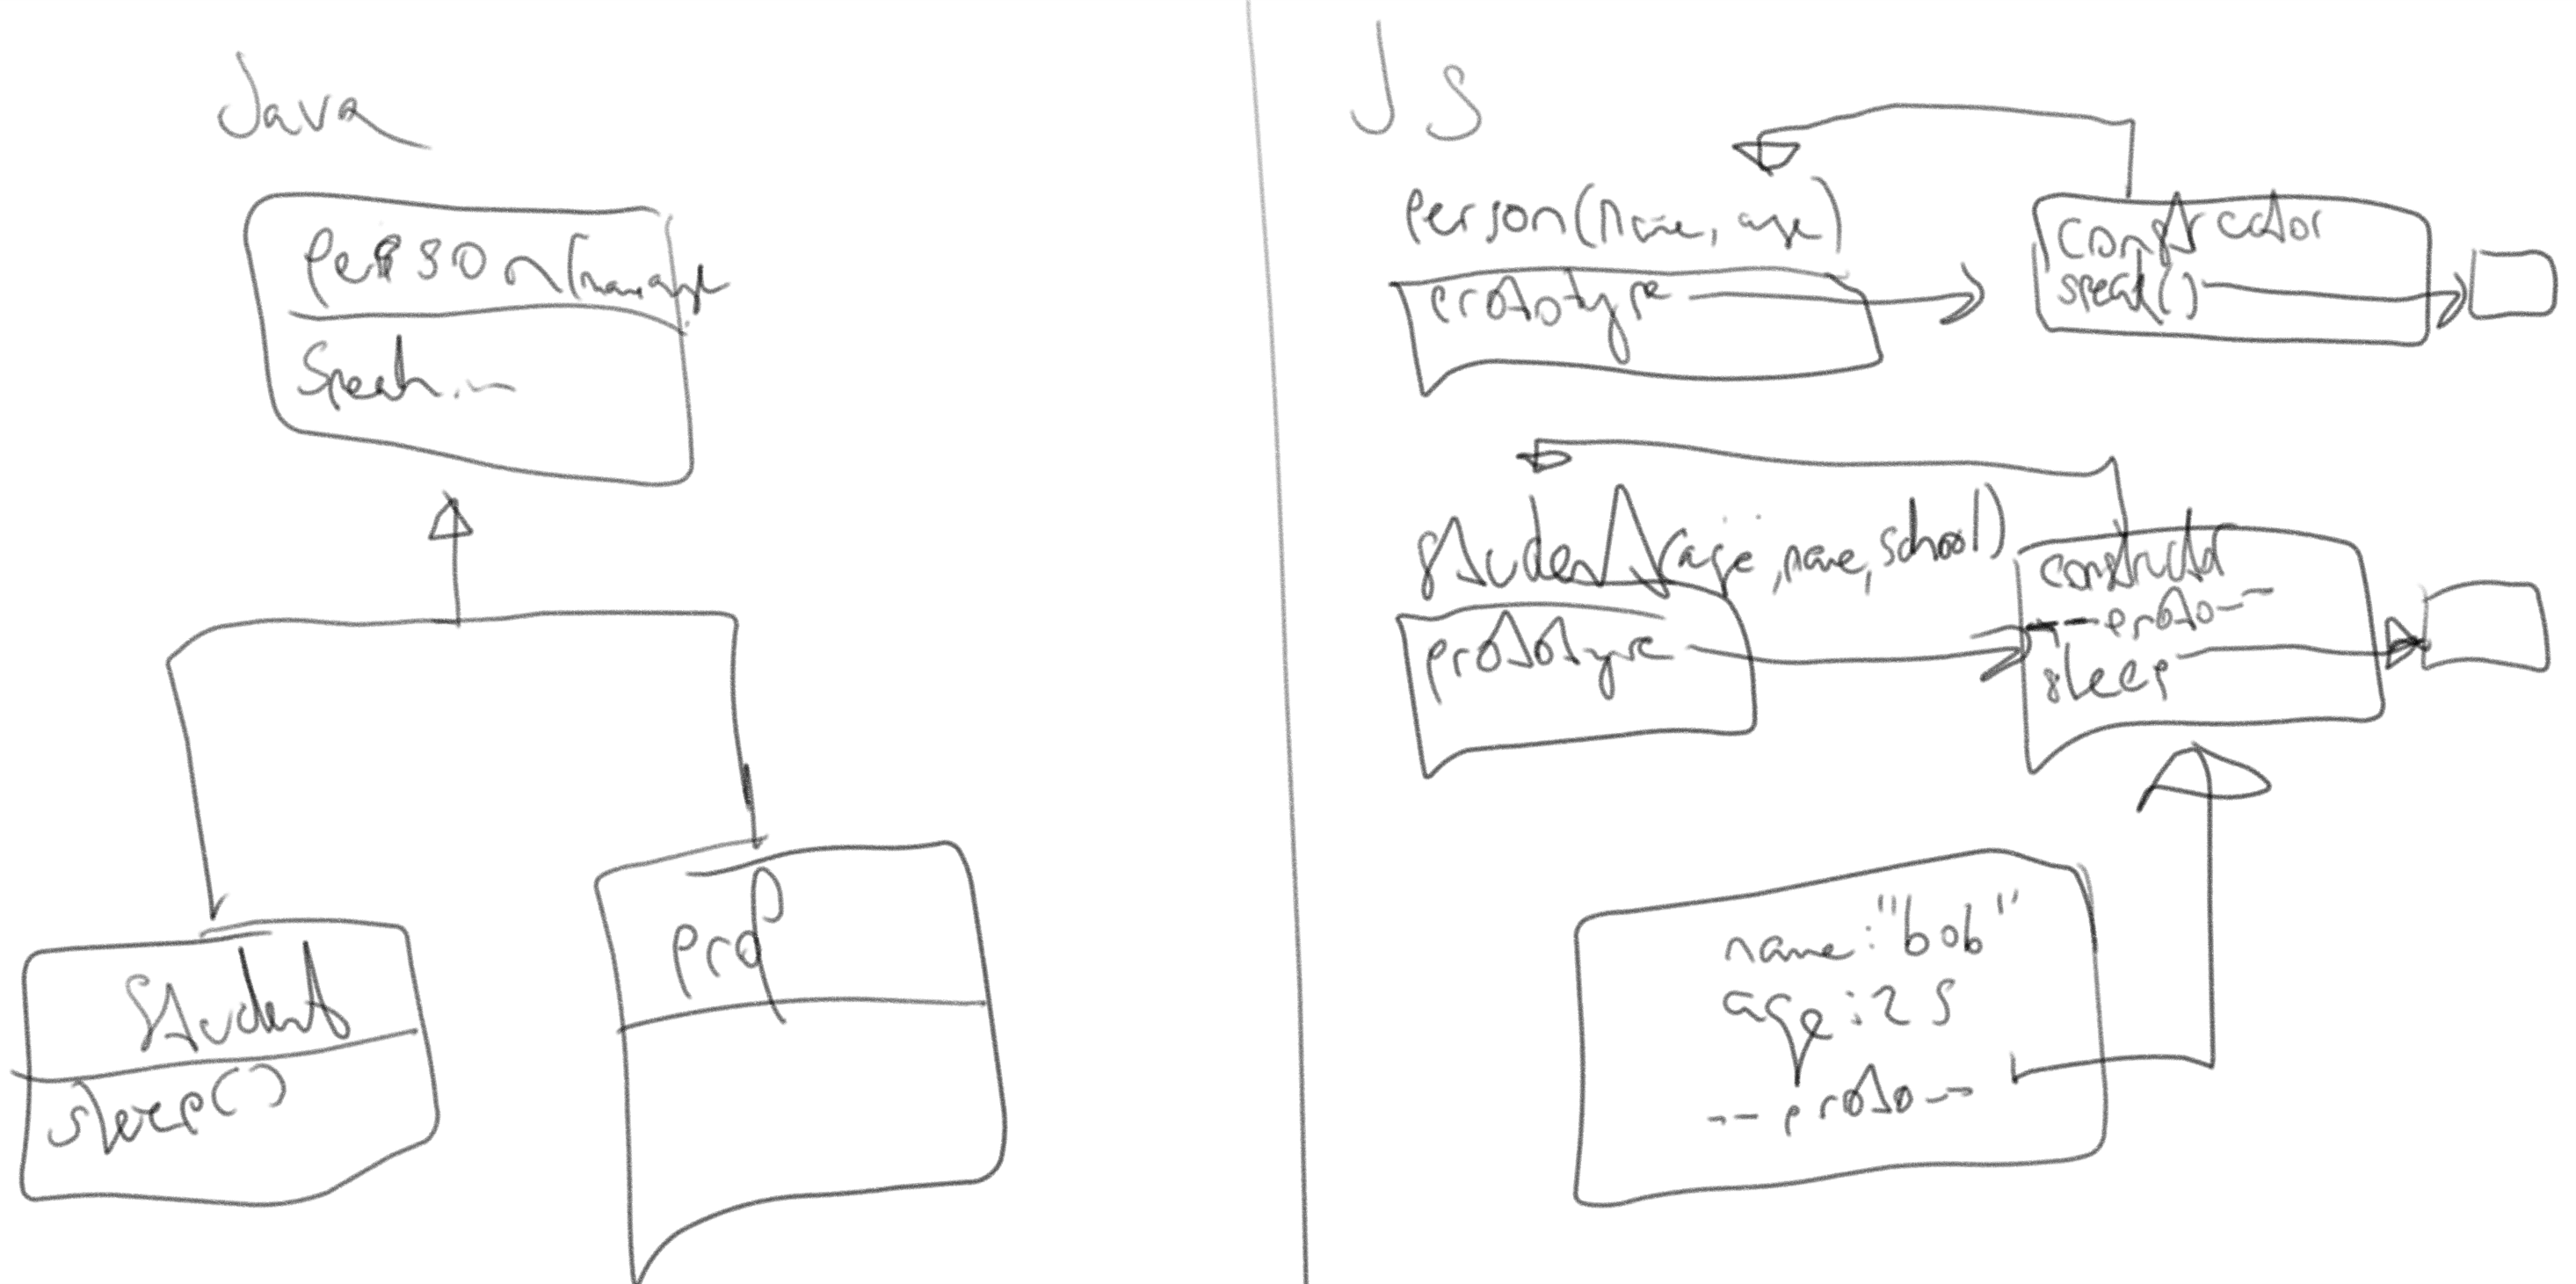 Java
Person(name, age
Speak...
Student
sleep()
prof
JS
Person(Name, age)
prototype
constructor
speak()
Student(age, name, school)
prototype
constructor
--proto--
sleep
name: "bob"
age: 25
--proto--